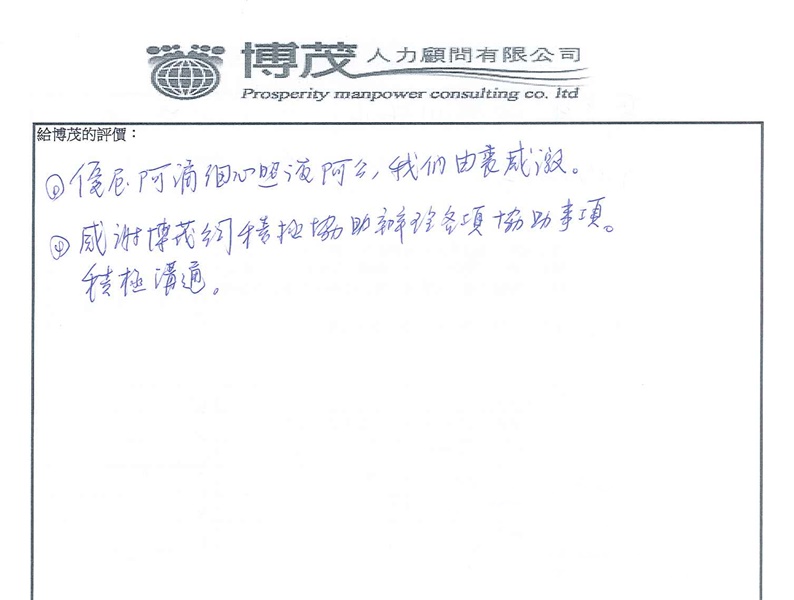 博茂人力顧問有限公司
Prosperity manpower consulting co. ltd
給博茂的評價：
阿滿細心照護阿公，我們由衷感激。
感謝博茂積極協助辦理各項協助事項。
積極溝通。